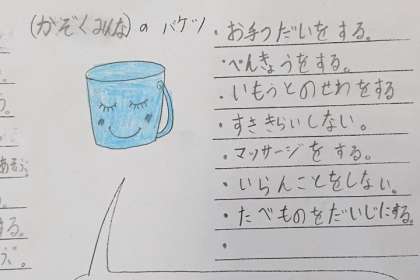 (かぞくみんな)の バケツ
・お手つだいをする。
・べんきょうをする。
・いもうとのせわをする
・すききらいしない。
・マッサージをする。
・いらんことをしない。
・たべものをだいじにする。
・